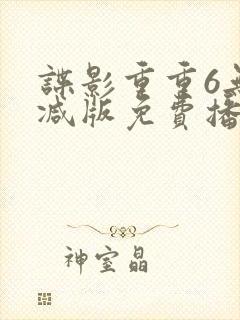 諜影重重6
減版免費播
神室晶